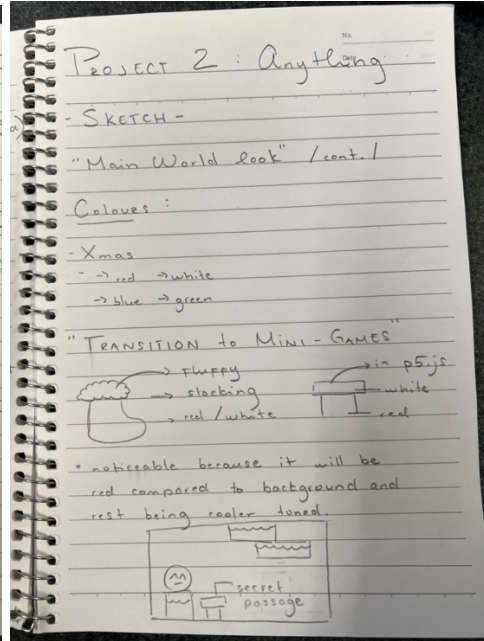 No.
Date
PROJECT 2 : Anything
- SKETCH -
"Main World look" /cont./
Colours :
- Xmas
- → red → white
→ blue → green
"TRANSITION to MINI-GAMES"
→ Fluffy
→ stocking
→ red / white
→ in p5.js
white
red
• noticeable because it will be
red compared to background and
rest being cooler toned.
secret
passage